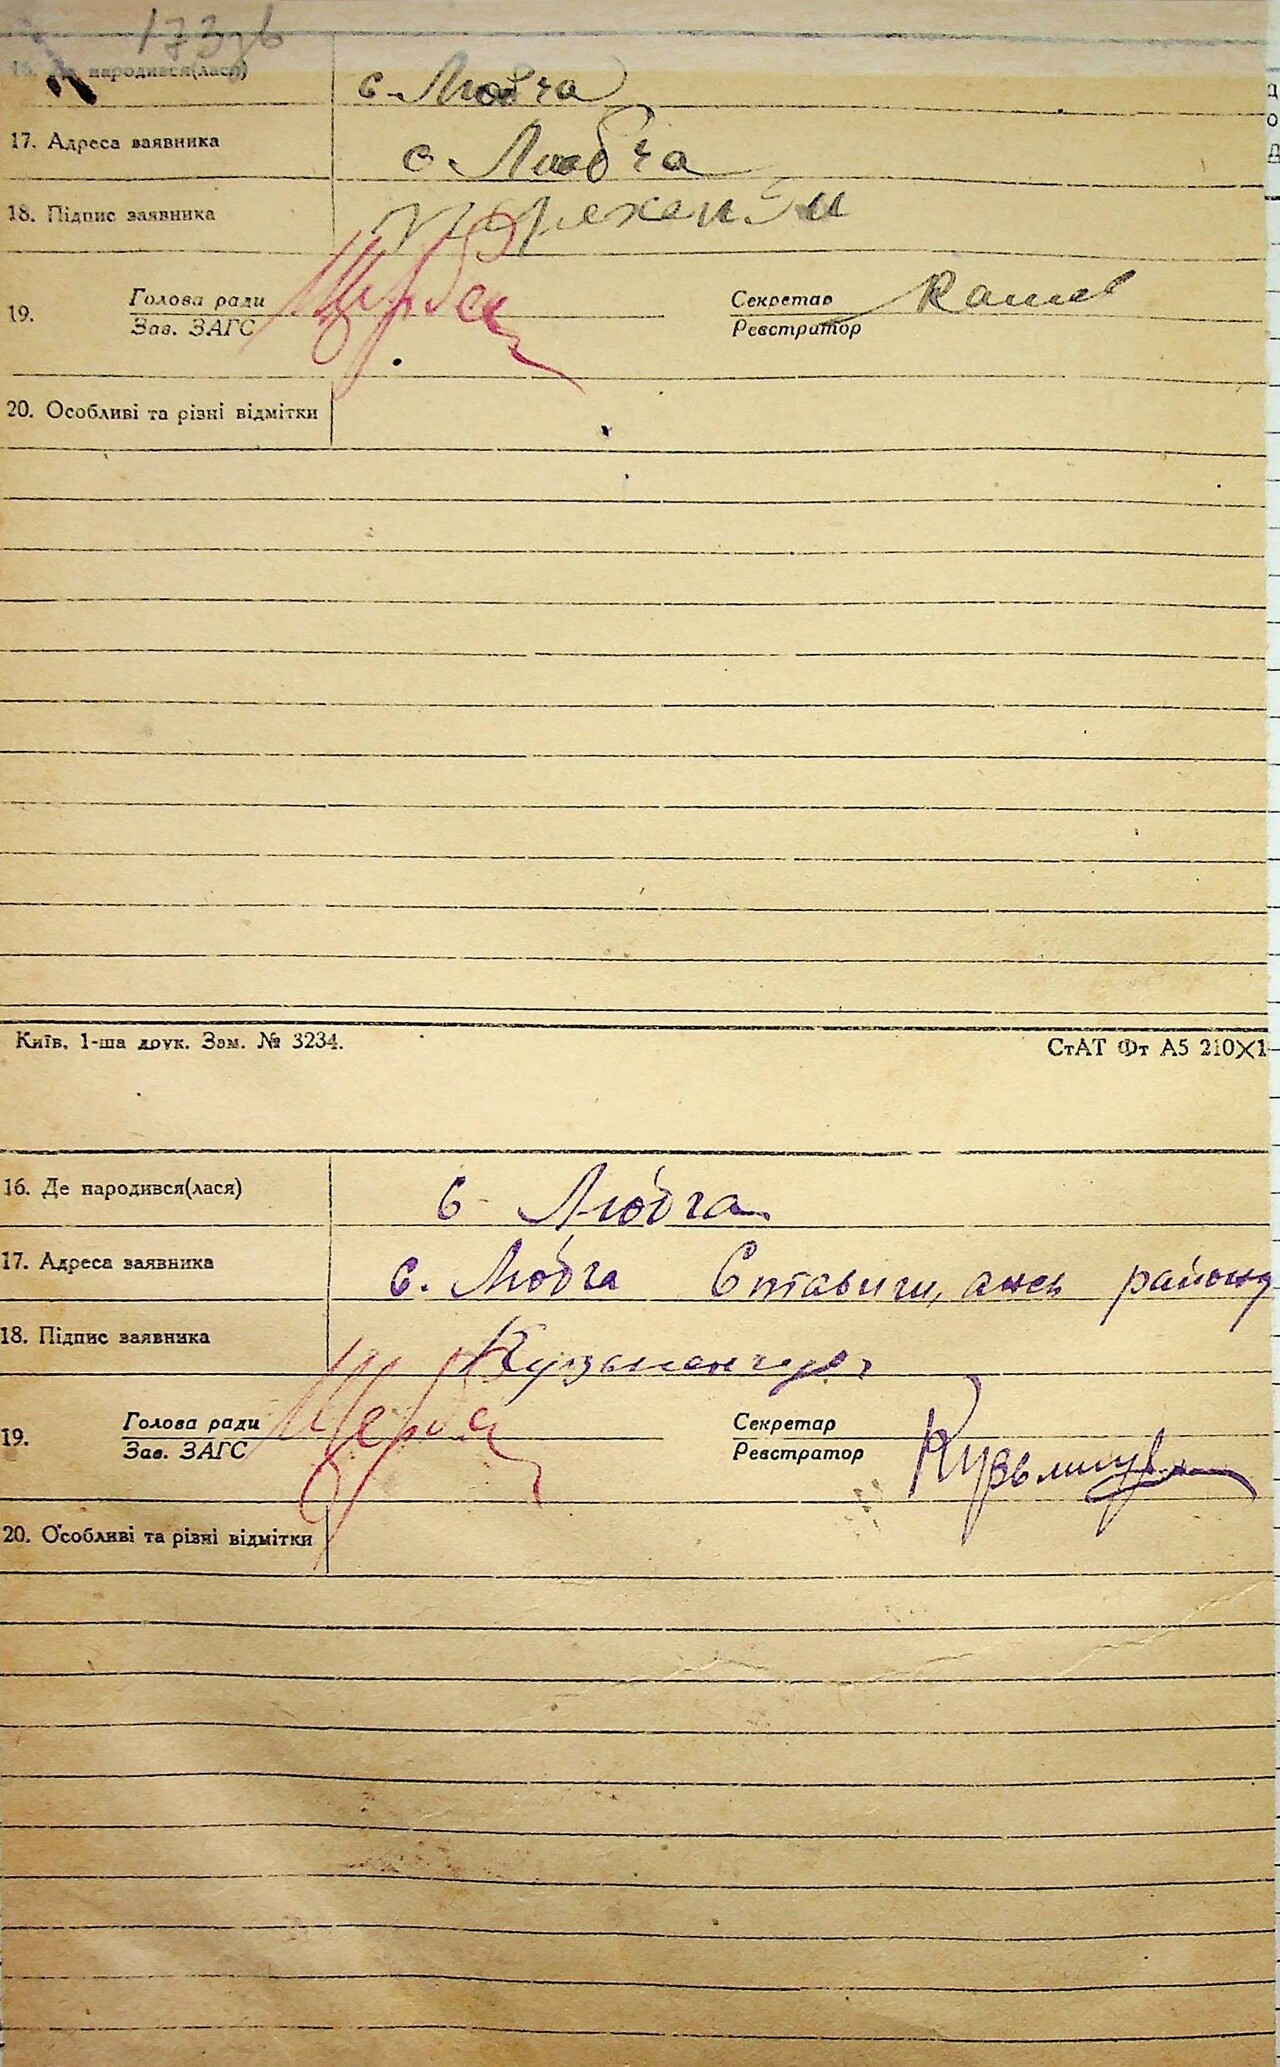 173зв
16. Де народився(лася) с. Любча
17. Адреса заявника с. Любча
18. Підпис заявника
19. Голова ради Щерба Секретар
Зав. ЗАГС Реєстратор
20. Особливі та різні відмітки
Київ, 1-ша друк. Зам. № 3234. СтАТ Фт А5 210×1
16. Де народився(лася) с. Любча
17. Адреса заявника с. Любча Ставищанск района
18. Підпис заявника
19. Голова ради Щерба Секретар
Зав. ЗАГС Реєстратор
20. Особливі та різні відмітки